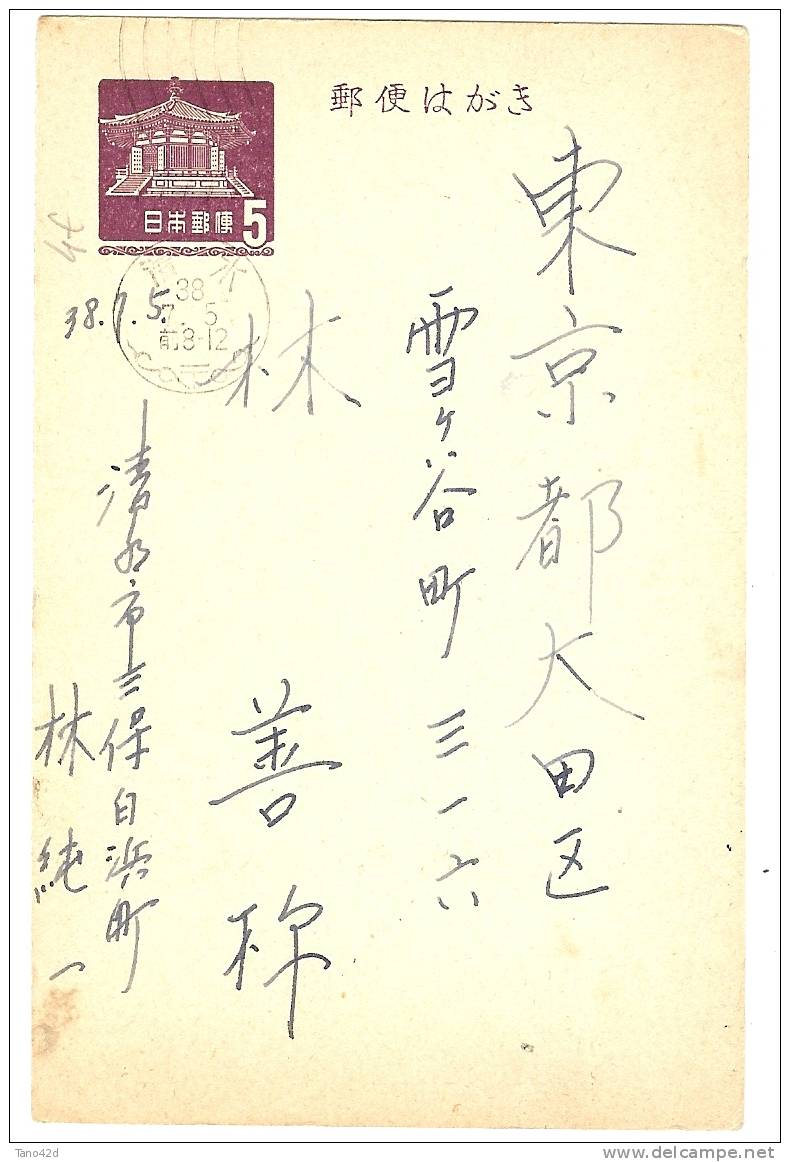 郵便はがき
日本郵便
5
清水
38
7. 5
前8-12
38.7.5.
東京都大田区
雪ヶ谷町三一六
林善
清水市三保白浜町
林純一
Tano42d
www.delcampe.net